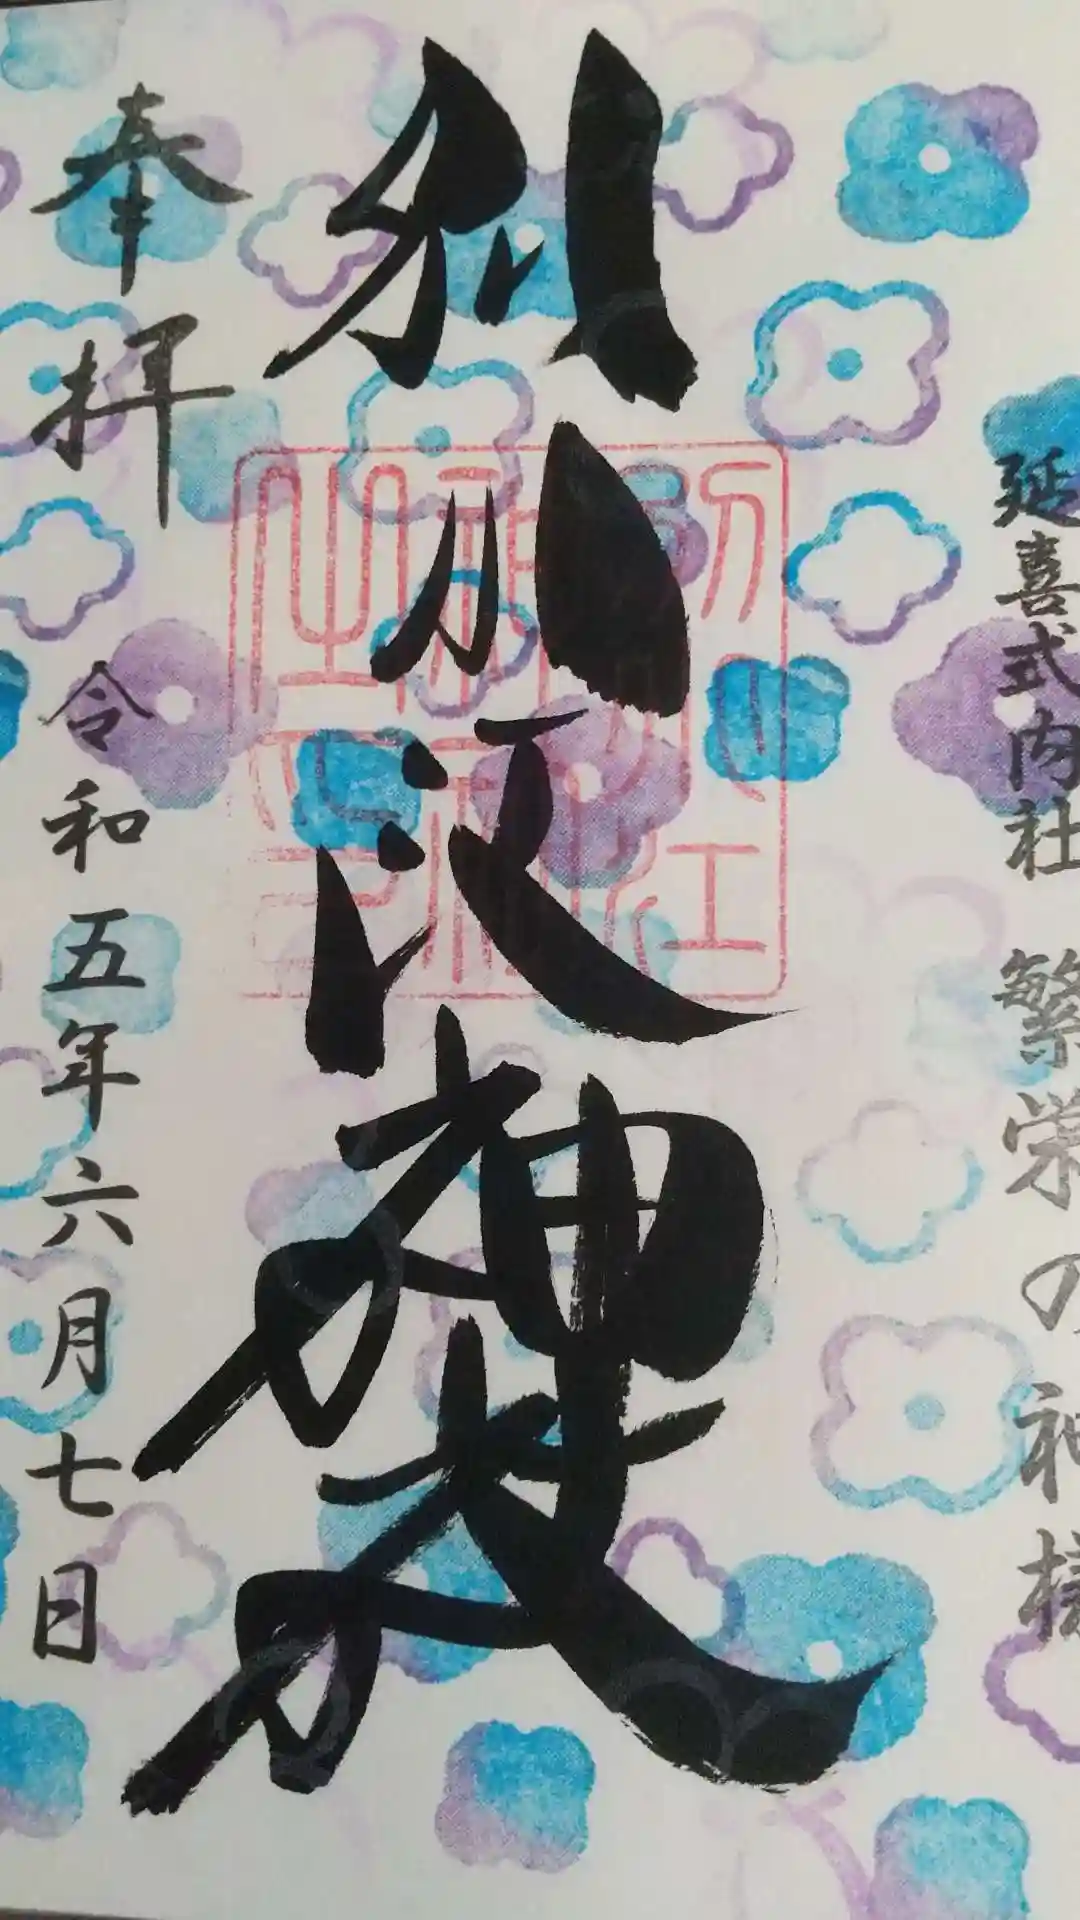 延喜式内社 繁栄の神様
別小江神社
別小江
神社
之印
奉拝 令和五年六月七日